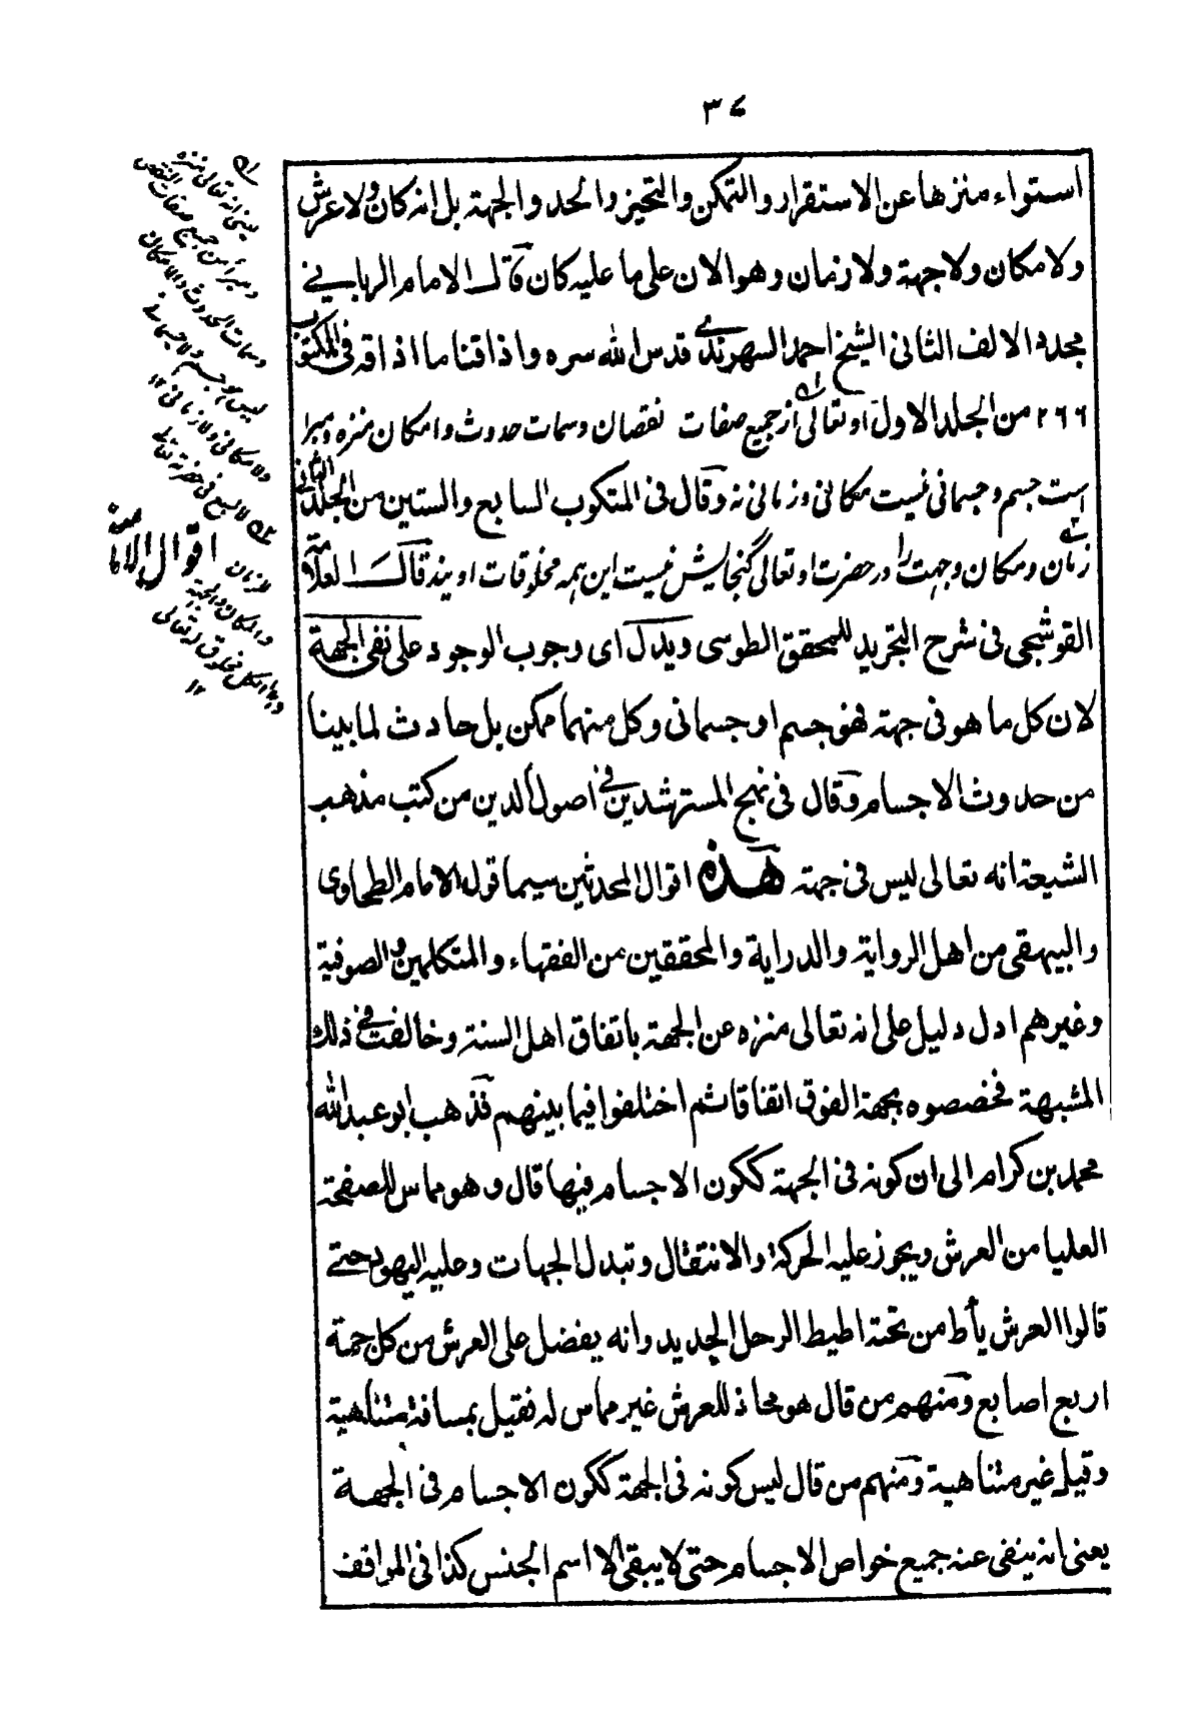 ٣٧
استواء منزها عن الاستقرار والتمكن والتحيز والحد والجهة بل انه كان ولا عرش
ولا مكان ولا جهة ولا زمان وهو الان على ما عليه كان قال الامام الربانی
مجدد الالف الثانی الشيخ احمد السهرندی قدس الله سره واذاقنا ما اذاقه فی المكتوب
٢٦٦ من الجلد الاول او تعالی از جمیع صفات نقصان وسمات حدوث وامکان منزه ومبرا
است جسم وجسمانی نیست مکانی وزمانی نه وقال فی المتكوب السابع والستين من الجلد الثانی
زمان ومکان وجهت را در حضرت او تعالی گنجایش نیست این همه مخلوقات اویند قال العلامة
القوشجی فی شرح التجريد للمحقق الطوسی ويدل ای وجوب الوجود علی نفی الجهة
لان كل ما هو فی جهة فهو جسم او جسمانی وكل منهما ممكن بل حادث لما بينا
من حدوث الاجسام وقال فی نهج المسترشدين فی اصول الدين من كتب مذهب
الشيعة انه تعالی ليس فی جهة هذه اقوال المحدثين سيما قول الامام الطحاوی
والبيهقی من اهل الرواية والدراية والمحققين من الفقهاء والمتكلمين والصوفية
وغيرهم ادل دليل علی انه تعالی منزه عن الجهة باتفاق اهل السنة وخالفت فی ذلك
المشبهة فخصصوه بجهة الفوق اتفاقا ثم اختلفوا فيما بينهم فذهب ابو عبد الله
محمد بن كرام الی ان كونه فی الجهة ككون الاجسام فيها قال وهو مماس للصفحة
العليا من العرش ويجوز عليه الحركة والانتقال وتبدل الجهات وعليه اليهود حتی
قالوا العرش يأط من تحته اطيط الرحل الجديد وانه يفضل علی العرش من كل جهة
اربع اصابع ومنهم من قال هو محاذ للعرش غير مماس له فقيل بمسافة متناهية
وقيل غير متناهية ومنهم من قال ليس كونه فی الجهة ككون الاجسام فی الجهة
يعنی انه ينفی عنه جميع خواص الاجسام حتی لا يبقی الا اسم الجنس كذا فی المواقف
يعنی انه تعالی منزه
ومبرأ من جميع صفات النقص
وسمات الحدوث والامكان
ليس هو جسم ولا جسمانی
ولا مكانی ولا زمانی ١٢
لا يسع فی حضرته تعالی
الزمان
والمكان والجهة
وهذا الكل مخلوق له تعالی
١٢
اقوال الامام